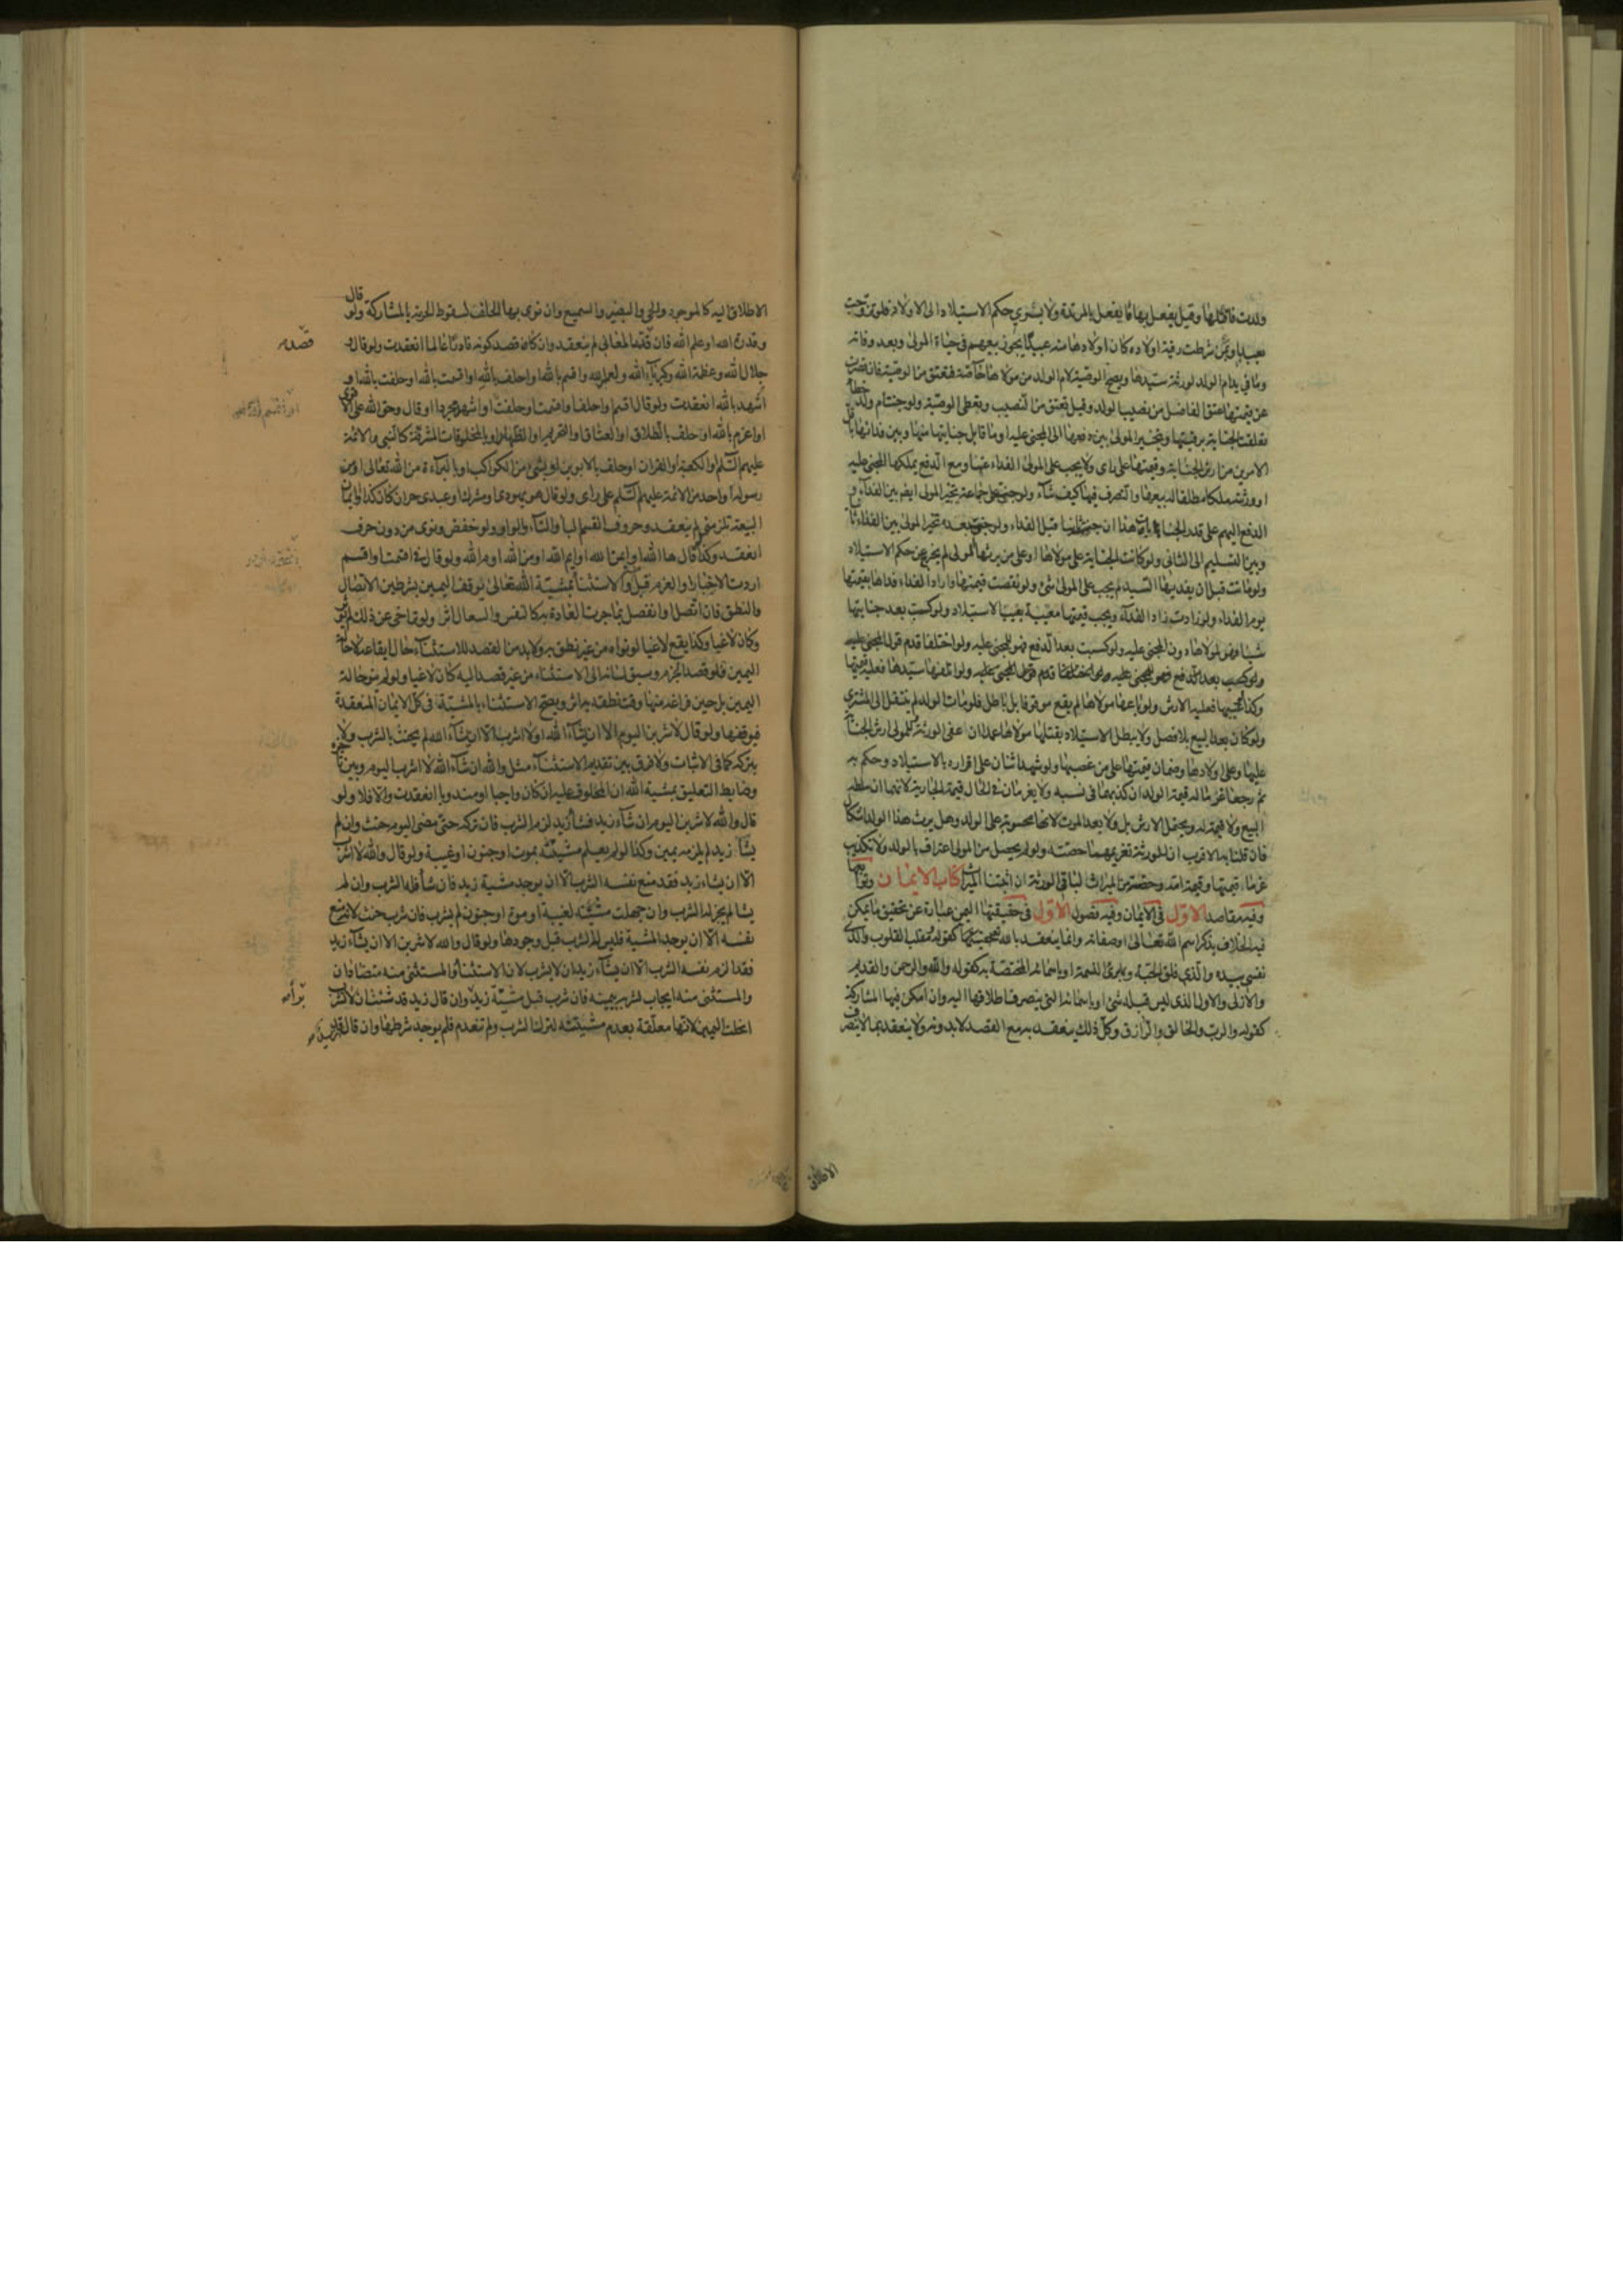 ولدت فاقتلها وقيل يفعل بها ما يفعل بالمرتدة ولا يسري حكم الاستيلاد الى الاولاد فلو تزوجت
بعبد او بمن شرطت رقية اولاده كان اولادها منه عبيدا يجوز بيعهم في حياة المولى وبعد وفاته
وما في يد ام الولد لورثة سيدها ويصح الوصية لام الولد من مولاها خاصة فتعتق من الوصية فان قصرت
عن قيمتها عتق الفاضل من نصيب الولد وقيل تعتق من النصيب وتعطى الوصية ولو جنت ام ولد خطأ
تعلقت الجناية برقبتها ويتخير المولى بين دفعها الى المجني عليه او ما قابل جنايتها منها وبين فدائها باقل
الامرين من ارش الجناية وقيمتها على راى ولا يجب على المولى الفداء عينا ومع الدفع يملكها المجني عليه
او ورثته ملكا مطلقا له بيعها والتصرف فيها كيف شاء ولو جنت على جماعة تخير المولى ايض بين الفداء و
الدفع اليهم على قدر الجنايات هذا ان جنت قبل الفداء ولو جنت بعده تخير المولى بين الفداء ثانيا
وبين التسليم الى الثانى ولو كانت الجناية على مولاها او على من يرثها المولى لم يخرج عن حكم الاستيلاد
ولو ماتت قبل ان يفديها السيد لم يجب على المولى شئ ولو نقصت قيمتها واراد الفداء فداها بقيمتها
يوم الفداء ولو زادت زاد الفداء ويجب قيمتها معيبة بعيب الاستيلاد ولو كسبت بعد جنايتها
شيئا فهو لمولاها دون المجني عليه ولو كسبت بعد الدفع فهو للمجني عليه ولو اختلفا قدم قول المجني عليه
ولو كسبت بعد الدفع فهو للمجني عليه ولو اختلفا قدم قول المجني عليه ولو اتلفها سيدها فعليه قيمتها
وكذا فعليه الارش ولو باعها مولاها لم يقع موقوفا بل باطل فلو مات الولد لم ينتقل الى المشتري
ولو كان بعد البيع بلا فصل ولا يبطل الاستيلاد بقتلها مولاها عمدا ان اعفى الورثة وللمولى ارش الجناية
عليها وعلى اولادها وضمان قيمتها على من غصبها ولو شهد اثنان على اقراره بالاستيلاد وحكم به
ثم رجعا غرما له قيمة الولد ان كذبهما في نسبه ولا يغرمان في الحال قيمة الجارية لانهما
البيع ولا قيمة له ويحتمل الارش بل ولا بعد الموت لانها محسوبة على الولد وهل يرث هذا الولد اشكال
فان قلنا به الاقرب ان للورثة تغريمهما حصته ولو لم يحصل من المولى اعتراف بالولد ولا تكذيب
غرما قيمتها وقيمة امه وحصته من الميراث لباقى الورثة ان اثبتنا الميراث كتاب الايمان وتوابعها
وفيه مقاصد الاول في الايمان وفيه فصول الاول في حقيقتها اليمين عبارة عن تحقيق ما يمكن
فيه الخلاف بذكر اسم الله تعالى او صفاته وانما ينعقد بالله كقوله ومقلب القلوب والذى
نفسى بيده والذي فلق الحبة وبارئ النسمة او باسمائه المختصة به كقوله والله والرحمن والقديم
والازلى والاول الذى ليس قبله شئ او باسمائه التى ينصرف اطلاقها اليه وان امكن فيها المشاركة
كقوله والرب والخالق والرازق وكل ذلك ينعقد به مع القصد لا بدونه ولا ينعقد بما لا ينصرف
الاطلاق
الاطلاق اليه كالموجود والحي والبصير والسميع وان نوى بها الحلف لسقوط الحرمة بالمشاركة ولو قال
وقدرة الله او علم الله فان قصد المعانى لم ينعقد وان كان قصد كونه قادرا عالما انعقدت ولو قال و
جلال الله وعظمة الله وكبرياء الله ولعمر الله واقسم بالله او احلف بالله او اقسمت بالله او حلفت بالله او
اشهد بالله انعقدت ولو قال اقسم او احلف او اقسمت او حلفت او اشهد مجردا او قال وحق الله على الاقوى
او اعزم بالله او حلف بالطلاق او العتاق او التحريم او الظهار او بالمخلوقات المشرفة كالنبي والائمة
عليهم السلم او الكعبة او القران او حلف بالابوين او بشئ من الكواكب او بالبراءة من الله تعالى او من
رسوله او واحد من الائمة عليهم السلم على راى ولو قال هو يهودى او مشرك او عبدى حر ان كان كذا او ايمان
البيعة تلزمنى لم ينعقد وحروف القسم الباء والتاء والواو ولو خفض ونوى من دون حرف
انعقد وكذا لو قال ها الله او ايمن الله او ايم الله او من الله او م الله ولو قال في اقسمت او اقسم
اردت الاخبار او العزم قبل والاستثناء بمشية الله تعالى يوقف اليمين بشرطين الاتصال
والنطق فان اتصل او انفصل بما جرت العادة به كالتنفس والسعال اثر ولو تراخى عن ذلك لم يؤثر
وكان لاغيا وكذا يقع لاغيا لو نواه من غير نطق به ولا بد من القصد للاستثناء حال ايقاعه لا حالة
اليمين فلو قصد الجزم وسبق لسانه الى الاستثناء من غير قصد اليه كان لاغيا ولو لم ينو حالة
اليمين بل حين فراغه منها وقت نطقه به اثر ويصح الاستثناء بالمشية في كل الايمان المنعقدة
فيوقفها ولو قال لاشربن اليوم الا ان يشاء الله او لا اشرب الا ان يشاء الله لم يحنث بالشرب ولا
بتركه كما في الاثبات ولا فرق بين تقديم الاستثناء مثل والله ان شاء الله لا اشرب اليوم وبين تاخيره
وضابط التعليق بمشية الله ان المحلوف عليه ان كان واجبا او مندوبا انعقدت والا فلا ولو
قال والله لاشربن اليوم ان شاء زيد فشاء زيد لزم الشرب فان تركه حتى مضى اليوم حنث وان لم
يشأ زيد لم يلزمه يمين وكذا لو لم يعلم مشيته بموت او جنون او غيبة ولو قال والله لا اشرب
الا ان يشاء زيد فقد منع نفسه الشرب الا ان يوجد مشية زيد فان شاء فله الشرب وان لم
يشا لم يجز له الشرب وان جهلت مشيته لغيبة او موت او جنون لم يشرب فان شرب حنث لانه منع
نفسه الا ان يوجد المشية فليس له الشرب قبل وجودها ولو قال والله لاشربن الا ان يشاء زيد
فقد الزم نفسه الشرب الا ان يشاء زيد ان لا يشرب لان الاستثناء والمستثنى منه متضادان
والمستثنى منه ايجاب لشربه بيمينه فان شرب قبل مشية زيد بر وان قال زيد قد شئت ان لا تشرب
انحلت اليمين لانها معلقة بعدم مشيته لترك الشرب ولم تنعدم فلم يوجد شرطها وان قال قد